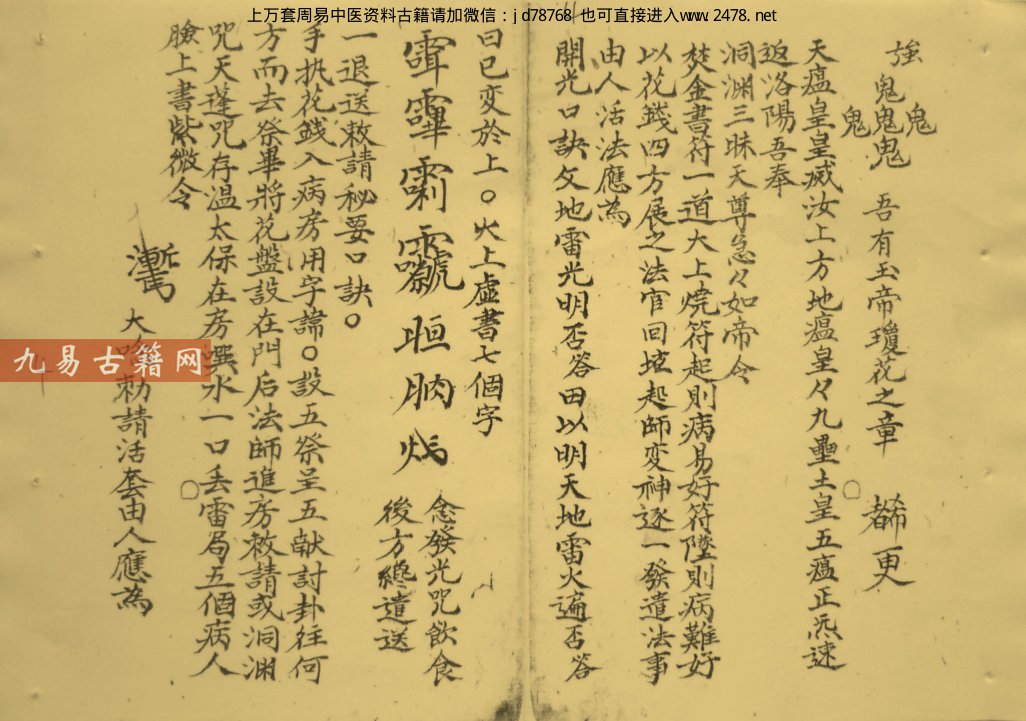 上万套周易中医资料古籍请加微信：jd78768 也可直接进入www.2478.net
鬼鬼鬼鬼鬼 吾有玉帝瓊花之章 更
天瘟皇皇滅汝上方地瘟皇々九壘土皇五瘟正炁速
返洛陽吾奉
洞渊三昧天尊急々如帝令
焚金書符一道大上燒符起則病易好符墜則病難好
以花錢四方展之法官回壇起師変神逐一發遣法事
由人活法應為
開光口訣攵地雷光明否答田以明天地雷火遍否答
曰已変於上○火上虛書七個字
念發光咒飲食
後方總遣送
一退送敕請秘要口訣○
手执花錢入病房用字諱○設五祭呈五献討卦往何
方而去祭畢將花盤設在門后法師進房敕請或洞渊
咒天蓬咒存温太保在房噀水一口丢雷局五個病人
臉上書紫微令
大 勅請活套由人應為
九易古籍网